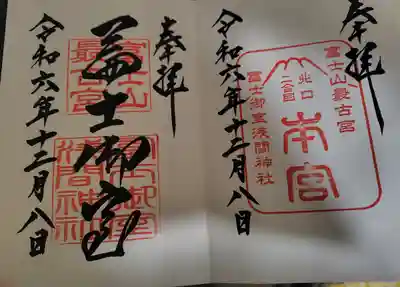 奉拝
本宮
富士山最古宮
北口
二合目
富士御室浅間神社
令和六年十二月八日
奉拝
富士山
最古宮
富士御室
浅間神社
令和六年十二月八日